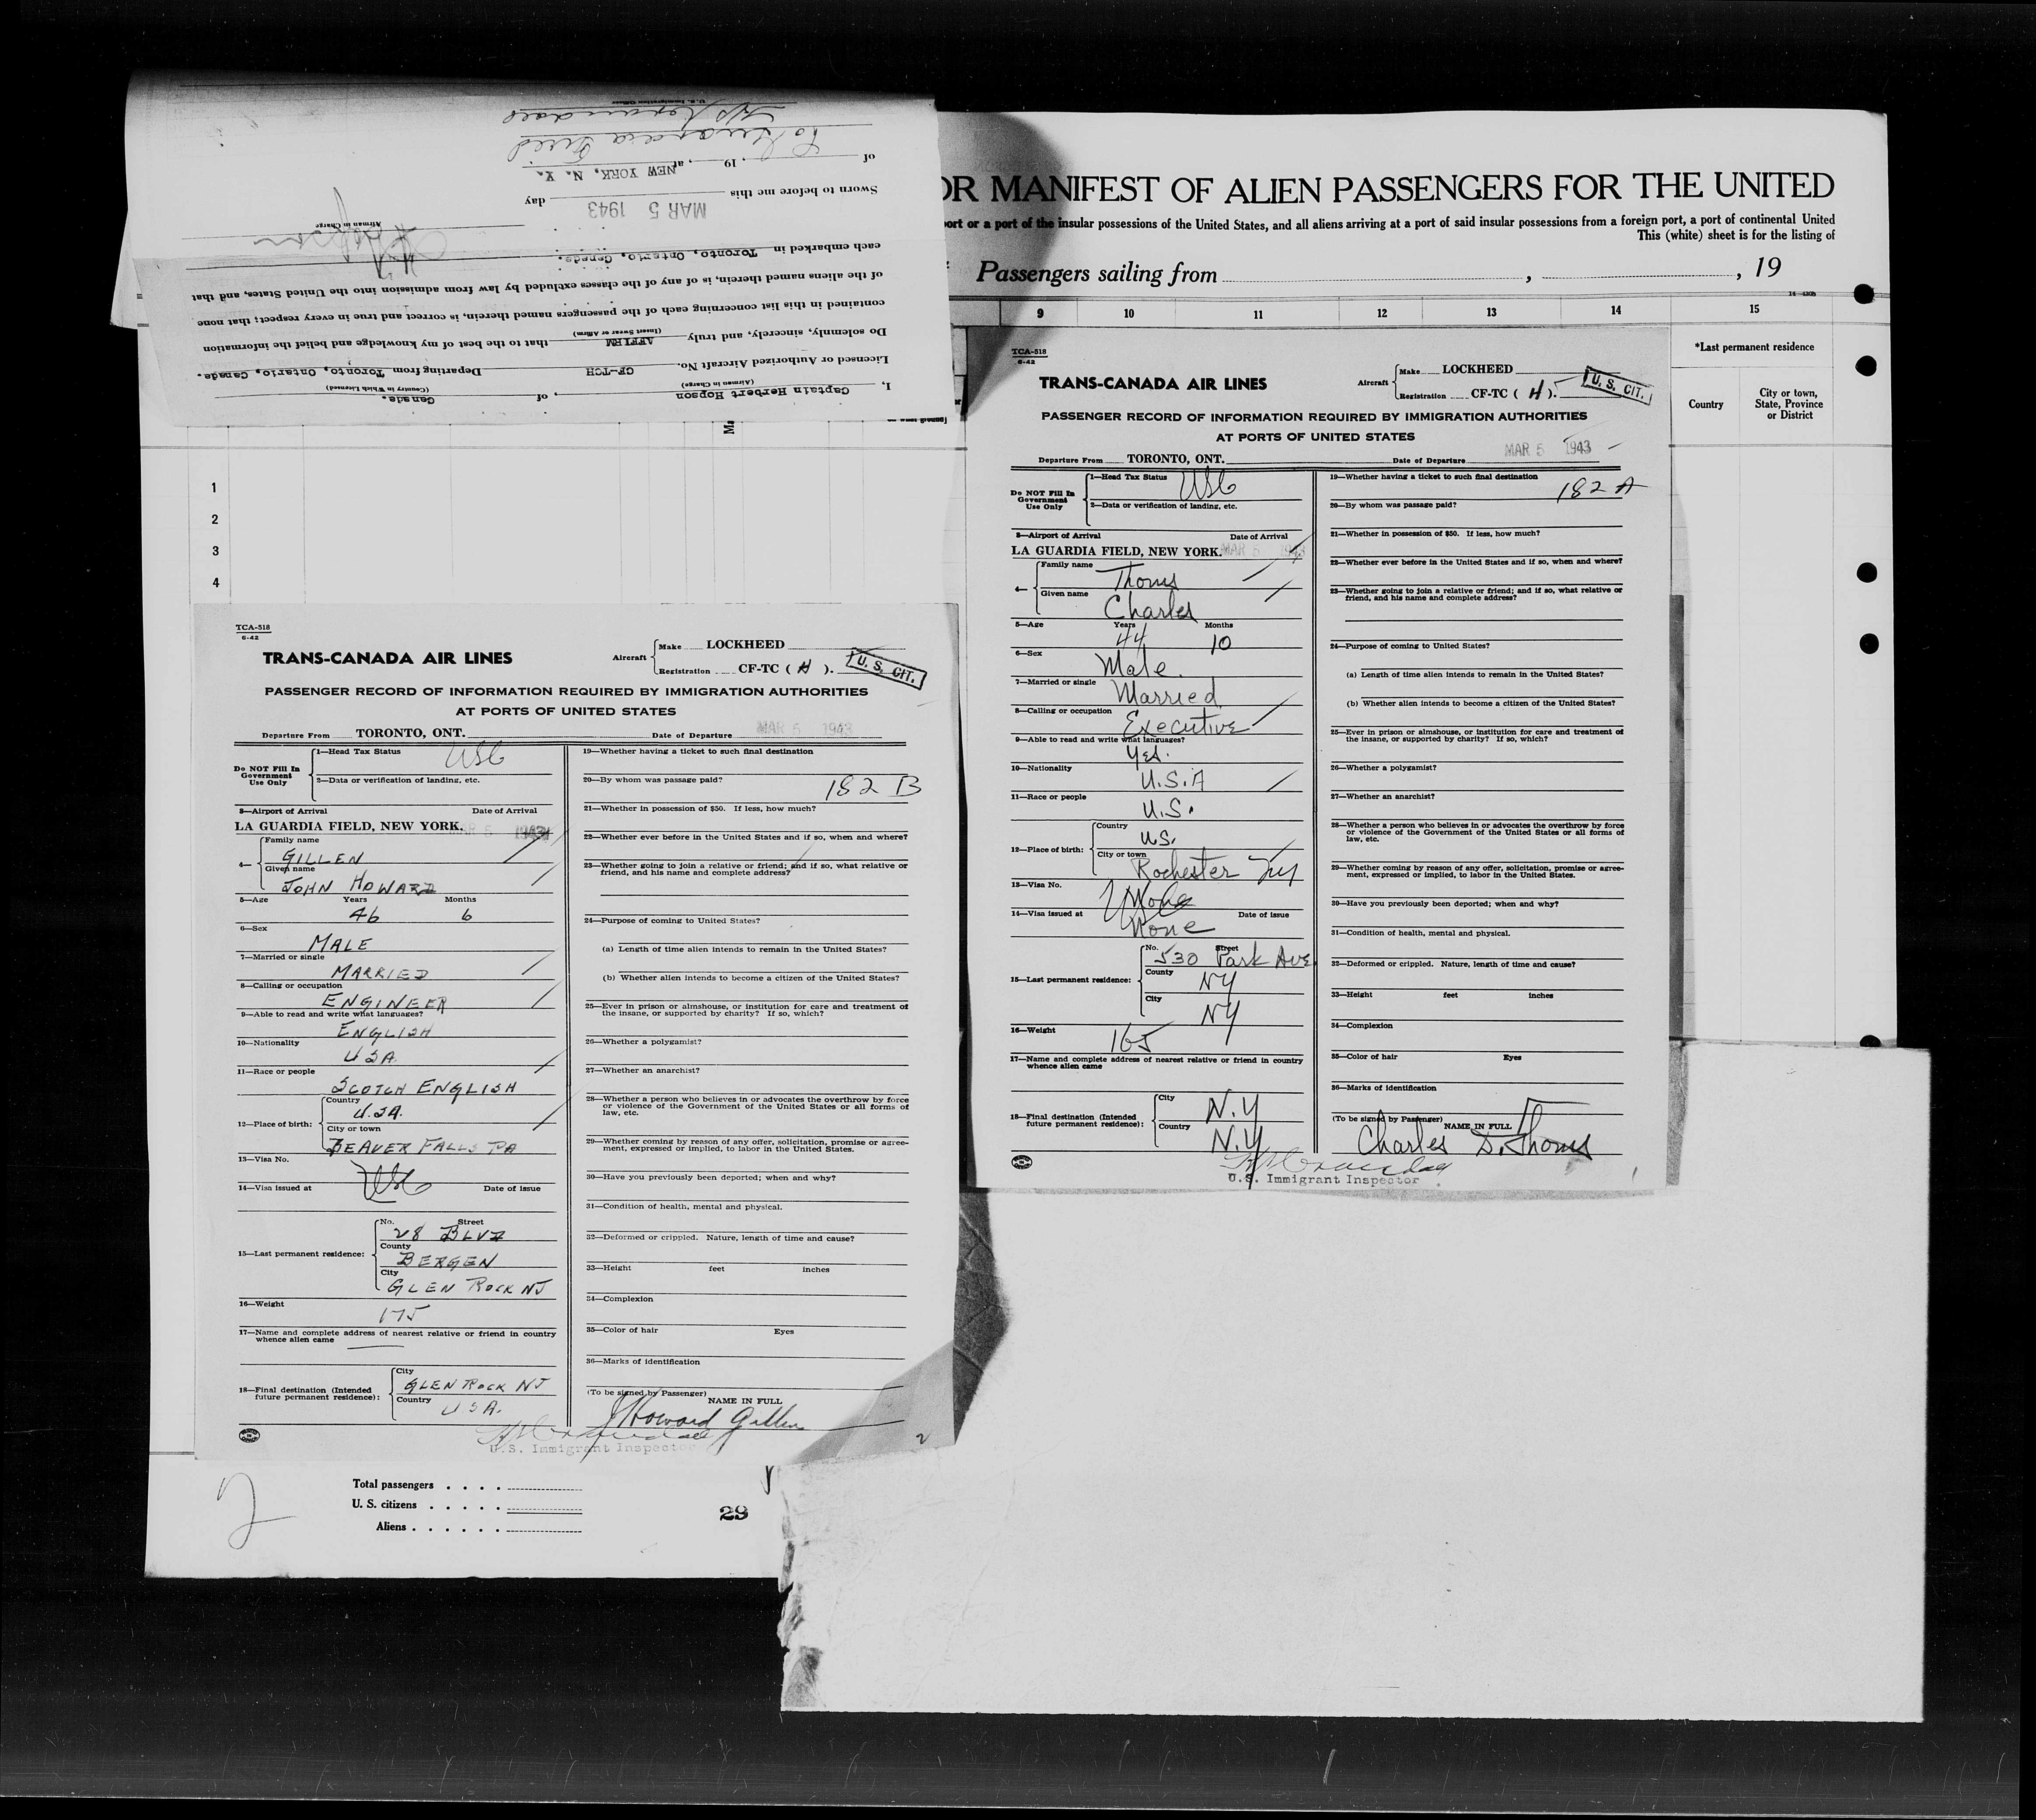 I, Captain Herbert Hopson, of Canada.
(Airman in Charge) (Country in Which Licensed)
Licensed or Authorized Aircraft No. CF-TCH Departing from Toronto, Ontario, Canada.
Do solemnly, sincerely, and truly AFFIRM that to the best of my knowledge and belief the information
(Insert Swear or Affirm)
contained in this list concerning each of the passengers named therein, is correct and true in every respect; that none
of the aliens named therein, is of any of the classes excluded by law from admission into the United States, and that
each embarked in Toronto, Ontario, Canada.
Airman in Charge
Sworn to before me this MAR 5 1943 day
of , 19 , at NEW YORK, N. Y.
U. S. Immigration Officer
OR MANIFEST OF ALIEN PASSENGERS FOR THE UNITED
port or a port of the insular possessions of the United States, and all aliens arriving at a port of said insular possessions from a foreign port, a port of continental United
This (white) sheet is for the listing of
Passengers sailing from , , 19
9 10 11 12 13 14 15
*Last permanent residence
Country City or town, State, Province or District
1
2
3
4
TCA-518
6-42
TRANS-CANADA AIR LINES
Aircraft Make LOCKHEED
Registration CF-TC ( H ).
U. S. CIT.
PASSENGER RECORD OF INFORMATION REQUIRED BY IMMIGRATION AUTHORITIES
AT PORTS OF UNITED STATES
Departure From TORONTO, ONT. Date of Departure MAR 5 1943
Do NOT Fill In Government Use Only
1—Head Tax Status USC
2—Data or verification of landing, etc.
3—Airport of Arrival Date of Arrival
LA GUARDIA FIELD, NEW YORK. MAR 5 1943
4— Family name GILLEN
Given name JOHN HOWARD
5—Age Years 46 Months 6
6—Sex MALE
7—Married or single MARRIED
8—Calling or occupation ENGINEER
9—Able to read and write what languages? ENGLISH
10—Nationality USA
11—Race or people SCOTCH ENGLISH
12—Place of birth: Country U.S.A.
City or town BEAVER FALLS PA
13—Visa No. USC
14—Visa issued at Date of issue
15—Last permanent residence: No. Street 28 BLVD
County BERGEN
City GLEN ROCK NJ
16—Weight 175
17—Name and complete address of nearest relative or friend in country
whence alien came
18—Final destination (Intended future permanent residence): City GLEN ROCK NJ
Country USA.
19—Whether having a ticket to such final destination
20—By whom was passage paid?
182 B
21—Whether in possession of $50. If less, how much?
22—Whether ever before in the United States and if so, when and where?
23—Whether going to join a relative or friend; and if so, what relative or
friend, and his name and complete address?
24—Purpose of coming to United States?
(a) Length of time alien intends to remain in the United States?
(b) Whether alien intends to become a citizen of the United States?
25—Ever in prison or almshouse, or institution for care and treatment of
the insane, or supported by charity? If so, which?
26—Whether a polygamist?
27—Whether an anarchist?
28—Whether a person who believes in or advocates the overthrow by force
or violence of the Government of the United States or all forms of
law, etc.
29—Whether coming by reason of any offer, solicitation, promise or agree-
ment, expressed or implied, to labor in the United States.
30—Have you previously been deported; when and why?
31—Condition of health, mental and physical.
32—Deformed or crippled. Nature, length of time and cause?
33—Height feet inches
34—Complexion
35—Color of hair Eyes
36—Marks of identification
(To be signed by Passenger)
NAME IN FULL
J Howard Gillen
U.S. Immigrant Inspector
2
TCA-518
6-42
TRANS-CANADA AIR LINES
Aircraft Make LOCKHEED
Registration CF-TC ( H ).
U. S. CIT.
PASSENGER RECORD OF INFORMATION REQUIRED BY IMMIGRATION AUTHORITIES
AT PORTS OF UNITED STATES
Departure From TORONTO, ONT. Date of Departure MAR 5 1943
Do NOT Fill In Government Use Only
1—Head Tax Status USC
2—Data or verification of landing, etc.
3—Airport of Arrival Date of Arrival
LA GUARDIA FIELD, NEW YORK. MAR 5 1943
4— Family name Thoms
Given name Charles
5—Age Years 44 Months 10
6—Sex Male.
7—Married or single Married
8—Calling or occupation Executive
9—Able to read and write what languages? Yes.
10—Nationality U.S.A
11—Race or people U.S.
12—Place of birth: Country U.S.
City or town Rochester NY
13—Visa No. None
14—Visa issued at None Date of issue
15—Last permanent residence: No. Street 530 Park Ave
County NY
City NY
16—Weight 165
17—Name and complete address of nearest relative or friend in country
whence alien came
18—Final destination (Intended future permanent residence): City N.Y
Country N.Y
19—Whether having a ticket to such final destination
182 A
20—By whom was passage paid?
21—Whether in possession of $50. If less, how much?
22—Whether ever before in the United States and if so, when and where?
23—Whether going to join a relative or friend; and if so, what relative or
friend, and his name and complete address?
24—Purpose of coming to United States?
(a) Length of time alien intends to remain in the United States?
(b) Whether alien intends to become a citizen of the United States?
25—Ever in prison or almshouse, or institution for care and treatment of
the insane, or supported by charity? If so, which?
26—Whether a polygamist?
27—Whether an anarchist?
28—Whether a person who believes in or advocates the overthrow by force
or violence of the Government of the United States or all forms of
law, etc.
29—Whether coming by reason of any offer, solicitation, promise or agree-
ment, expressed or implied, to labor in the United States.
30—Have you previously been deported; when and why?
31—Condition of health, mental and physical.
32—Deformed or crippled. Nature, length of time and cause?
33—Height feet inches
34—Complexion
35—Color of hair Eyes
36—Marks of identification
(To be signed by Passenger)
NAME IN FULL
Charles D. Thoms
U.S. Immigrant Inspector
2
Total passengers
U. S. citizens
Aliens
29